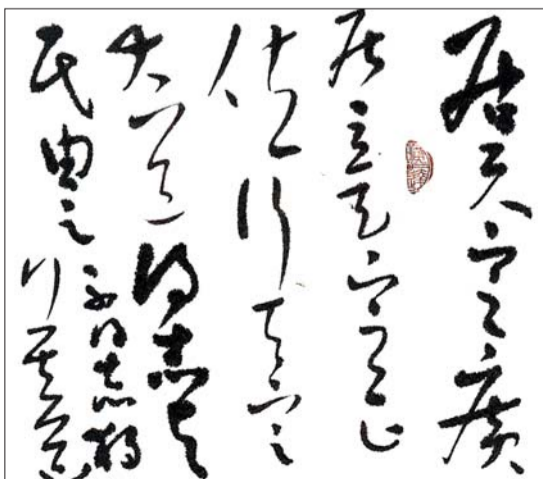 居天下之廣
居立天下之正
位行天下之
大道得志與
民由之不得志獨
行其道